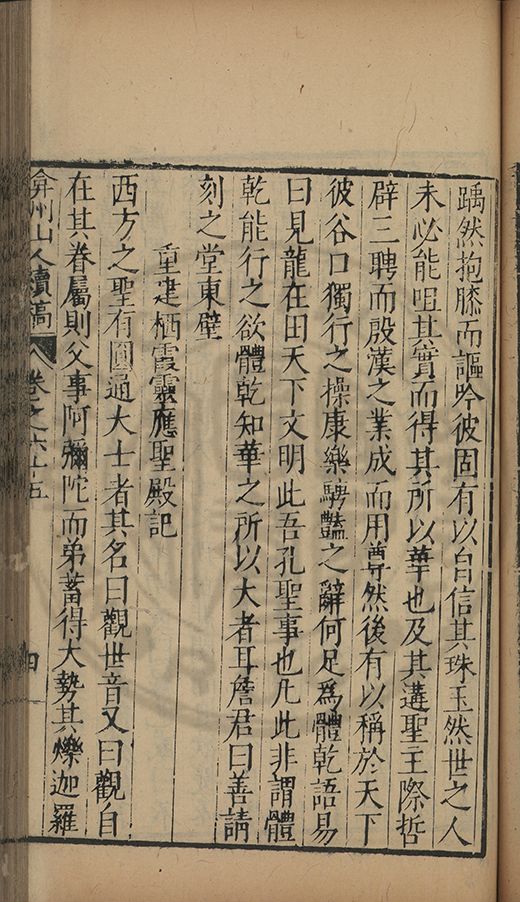 踽然抱膝而謳吟彼固有以自信其珠玉然世之人
未必能咀其實而得其所以華也及其遘聖主際哲
辟三聘而殷漢之業成而用尊然後有以稱於天下
彼谷口獨行之操康樂騁豔之辭何足為體乾語易
曰見龍在田天下文明此吾孔聖事也凡此非謂體
乾能行之欲體乾知華之所以大者耳詹君曰善請
刻之堂東壁
重建栖霞靈應聖殿記
西方之聖有圓通大士者其名曰觀世音又曰觀自
在其眷屬則父事阿彌陀而弟蓄得大勢其爍迦羅
弇州山人續稿 卷之六十五 四